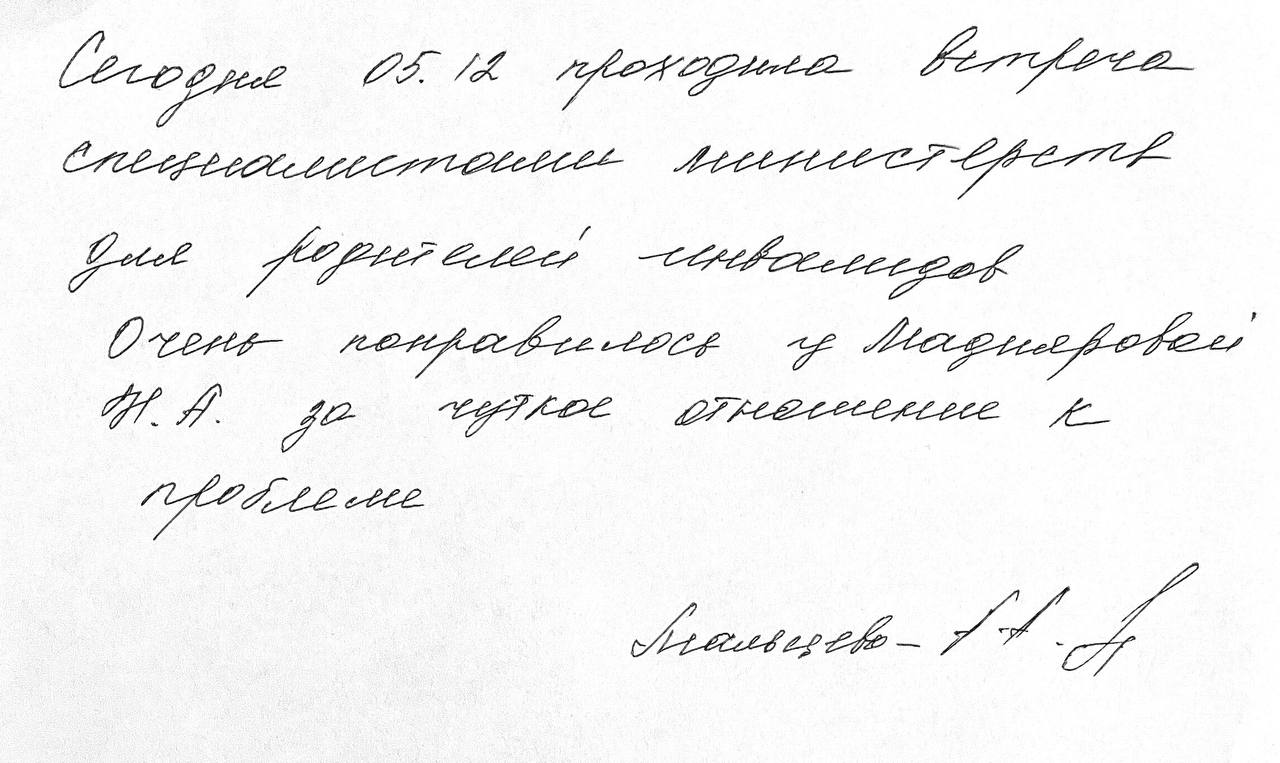 Сегодня 05.12 проходила встреча
специалистами министерств
для родителей инвалидов
Очень понравилось у Мадияровой
Н.А. за чуткое отношение к
проблеме
Мальцева